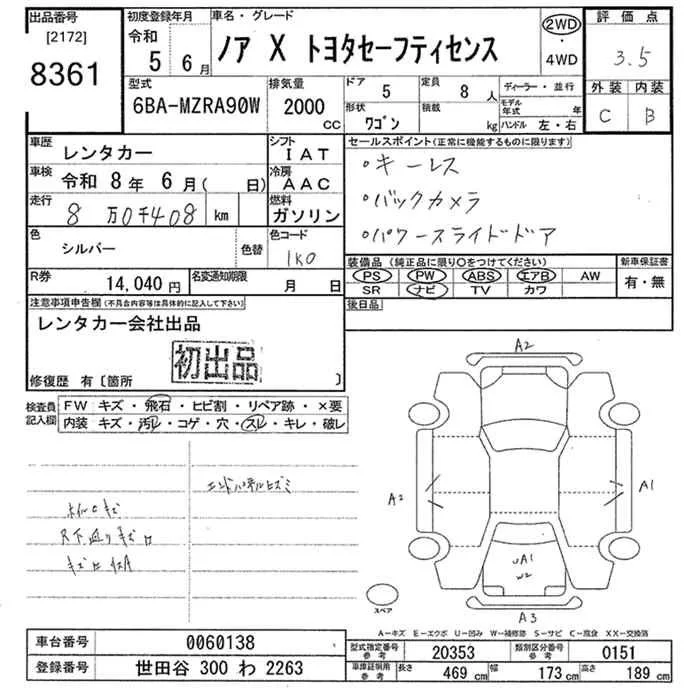 出品番号
[2172]
8361
初度登録年月
令和
5 6月
車名・グレード
ノア X トヨタセーフティセンス
2WD
・
4WD
評価点
3.5
外装 内装
C B
型式
6BA-MZRA90W
排気量
2000
CC
ドア
5
定員
8 人
形状
ワゴン
積載
kg
ディーラー・並行
モデル年式 年
ハンドル 左・右
車歴
レンタカー
シフト
IAT
車検
令和 8年 6月( 日)
冷房
AAC
走行
8万0千408 km
燃料
ガソリン
色
シルバー
色替
色コード
1K0
R券
14,040円
名変通知期限
月 日
セールスポイント(正常に機能するものに限ります)
・キーレス
・バックカメラ
・パワースライドドア
装備品 (純正品に限り○をつけてください)
PS PW ABS エアB AW
SR ナビ TV カワ
新車保証書
有・無
後日品
注意事項申告欄(不具合内容等は具体的に記入して下さい)
レンタカー会社出品
初出品
修復歴 有〔箇所 〕
検査員記入欄
FW キズ・飛石・ヒビ割・リペア跡・×要
内装 キズ・汚レ・コゲ・穴・スレ・キレ・破レ
エンドパネルヒズミ
A2
A2
A1
UA1
W2
A3
スペア
A-キズ E-エクボ U-凹み W-補修跡 S-サビ C-腐食 XX-交換済
車台番号
0060138
登録番号
世田谷 300 わ 2263
型式指定番号
参考
20353
類別区分番号
参考
0151
車庫証明用
参考
長さ
469 cm
幅
173 cm
高さ
189 cm